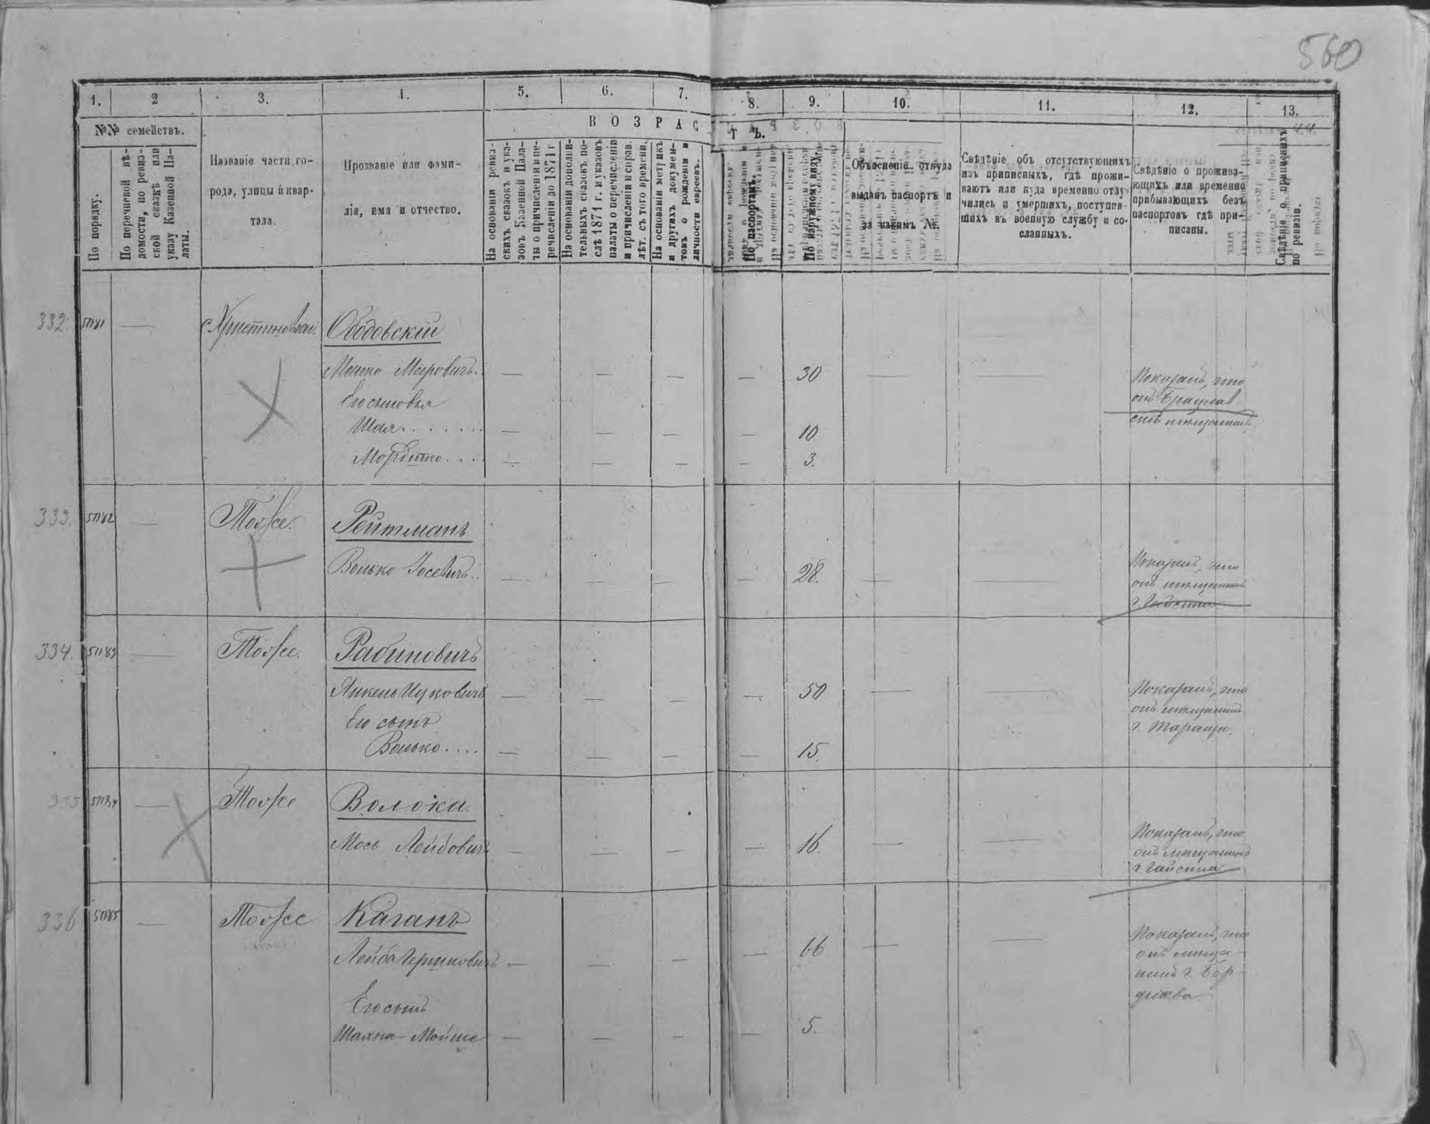 560
1. 2 3. 4. 5. 6. 7. 8. 9. 10. 11. 12. 13.
№№ семействъ.
В О З Р А С Т Ъ.
По порядку.
По перечневой вѣ-
домости, по ревиз-
ской сказкѣ или
указу Казенной Па-
латы.
Названіе части, го-
рода, улицы и квар-
тала.
Прозваніе или фами-
лія, имя и отчество.
На основаніи ревиз-
скихъ сказокъ и ука-
зовъ Казенной Пала-
ты о причисленіи и пе-
речисленіи до 1871 г
На основаніи дополни-
тельныхъ сказокъ по-
слѣ 1871 г. и указовъ
палаты о перечисленіи
и причисленіи и исправ.
лѣт. съ того времени.
На основаніи метрикъ
и другихъ докумен-
товъ о рожденіи и
личности евреевъ.
По паспортамъ
По наружному виду
Объясненіе откуда
выданъ паспортъ и
за какимъ №
Свѣдѣніе объ отсутствующихъ
изъ приписныхъ, гдѣ прожи-
ваютъ или куда временно отлу-
чились и умершихъ, поступив-
шихъ въ военную службу и со-
сланныхъ.
Свѣдѣніе о прожива-
ющихъ или временно
прибывающихъ безъ
паспортовъ гдѣ при-
писаны.
Свѣдѣніе о приписныхъ
по ревизіи.
332 51181 — с Христиновка. Ободовскій
Мошко Мееровичъ. — — — — 30 — — Показалъ, что
онъ Брацлав
скій мѣщанинъ.
Его сыновья
Шая. . . . . . . — — — — 10
Мордко. . . . — — — — 3.
333. 51182 — Тоже. Рейтманъ
Волько Іосевичъ. . — — — — 28. — — Показалъ, что
онъ мѣщанинъ
г. Гайсина
334. 51183 — Тоже. Рабиновичъ
Янкель Ицковичъ — — — — 50 — — Показалъ, что
онъ мѣщанинъ
г. Таращи.
Его сынъ
Волько . . . . — — — — 15.
335 51184 — Тоже Волока.
Мось Лейбовичъ — — — — 16. — — Показалъ, что
онъ мѣщанинъ
г. Гайсина
336 51185 — Тоже Каганъ
Лейба Гершковичъ — — — — 66 — — Показалъ, что
онъ мѣща-
нинъ г. Бер-
дичева
Его сынъ
Шахна-Мойше — — — — 5.